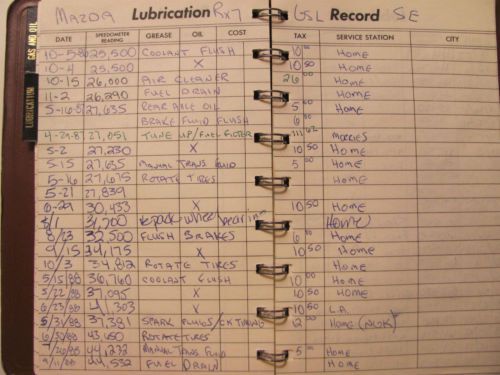 MAZDA Lubrication Rx7 GSL Record SE
DATE SPEEDOMETER READING GREASE OIL COST TAX SERVICE STATION CITY
GAS AND OIL
LUBRICATION
10-5-86 25,500 COOLANT FLUSH 10 00 HOME
10-4 25,500 X 10 50 HOME
10-15 26,000 AIR CLEANER 26 00 HOME
11-2 26,290 FUEL DRAIN HOME
5-16-87 27,635 REAR AXLE OIL 5 00 HOME
BRAKE FLUID FLUSH 6 00
4-29-87 27,051 TUNE UP/FUEL FILTER 111 62 MORRIES
5-2 27,230 X 10 50 HOME
5-15 27,635 MANUAL TRANS FLUID 5 00 HOME
5-16 27,675 ROTATE TIRES HOME
5-21 27,839
6-20 30,433 X 10 50 HOME
8/1 31,700 Repack wheel bearin- HOME
8/23 32,500 FLUSH BRAKES 6 00 HOME
9/15 34,175 X 10 50 HOME
10/3 34,812 ROTATE TIRES HOME
5/15/88 36,760 COOLANT FLUSH 10 00 HOME
5/22/88 37,095 X 10 50 HOME
6/23/88 41,303 X 10 50 L.A.
5/31/88 37,381 SPARK PLUGS/CK TIMING 12 00 HOME (NGK)
6/30/88 43,450 ROTATE TIRES
7/26/88 44,232 MANUAL TRANS FLUID 5 00 HOME
9/11/88 44,532 FUEL DRAIN HOME